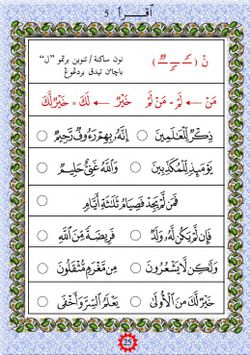 اقرأ ٥
نْ ( ــًــٍــٌ )
نون ساكنة / تنوين برتمو "ل"
باچاءن تيدق بردڠوڠ
مَنْ ← لَمْ - مَنْ لَمْ خَيْرٌ ← لَكَ = خَيْرٌ لَّكَ
ذِكْرٌ لِّلْعَٰلَمِينَ ○ إِنَّهُۥ بِهِمْ رَءُوفٌ رَّحِيمٌ ○
يَوْمَئِذٍ لِّلْمُكَذِّبِينَ ○ وَٱللَّهُ غَنِيٌّ حَلِيمٌ ○
فَمَن لَّمْ يَجِدْ فَصِيَامُ ثَلَٰثَةِ أَيَّامٍ ○
فَإِن لَّمْ يَكُن لَّهُۥ وَلَدٌ ○ فَرِيضَةً مِّنَ ٱللَّهِ ○
وَلَٰكِن لَّا يَشْعُرُونَ ○ مِن مَّغْرَمٍ مُّثْقَلُونَ ○
خَيْرٌ لَّكَ مِنَ ٱلْأُولَىٰ ○ يَعْلَمُ ٱلسِّرَّ وَأَخْفَى ○
25